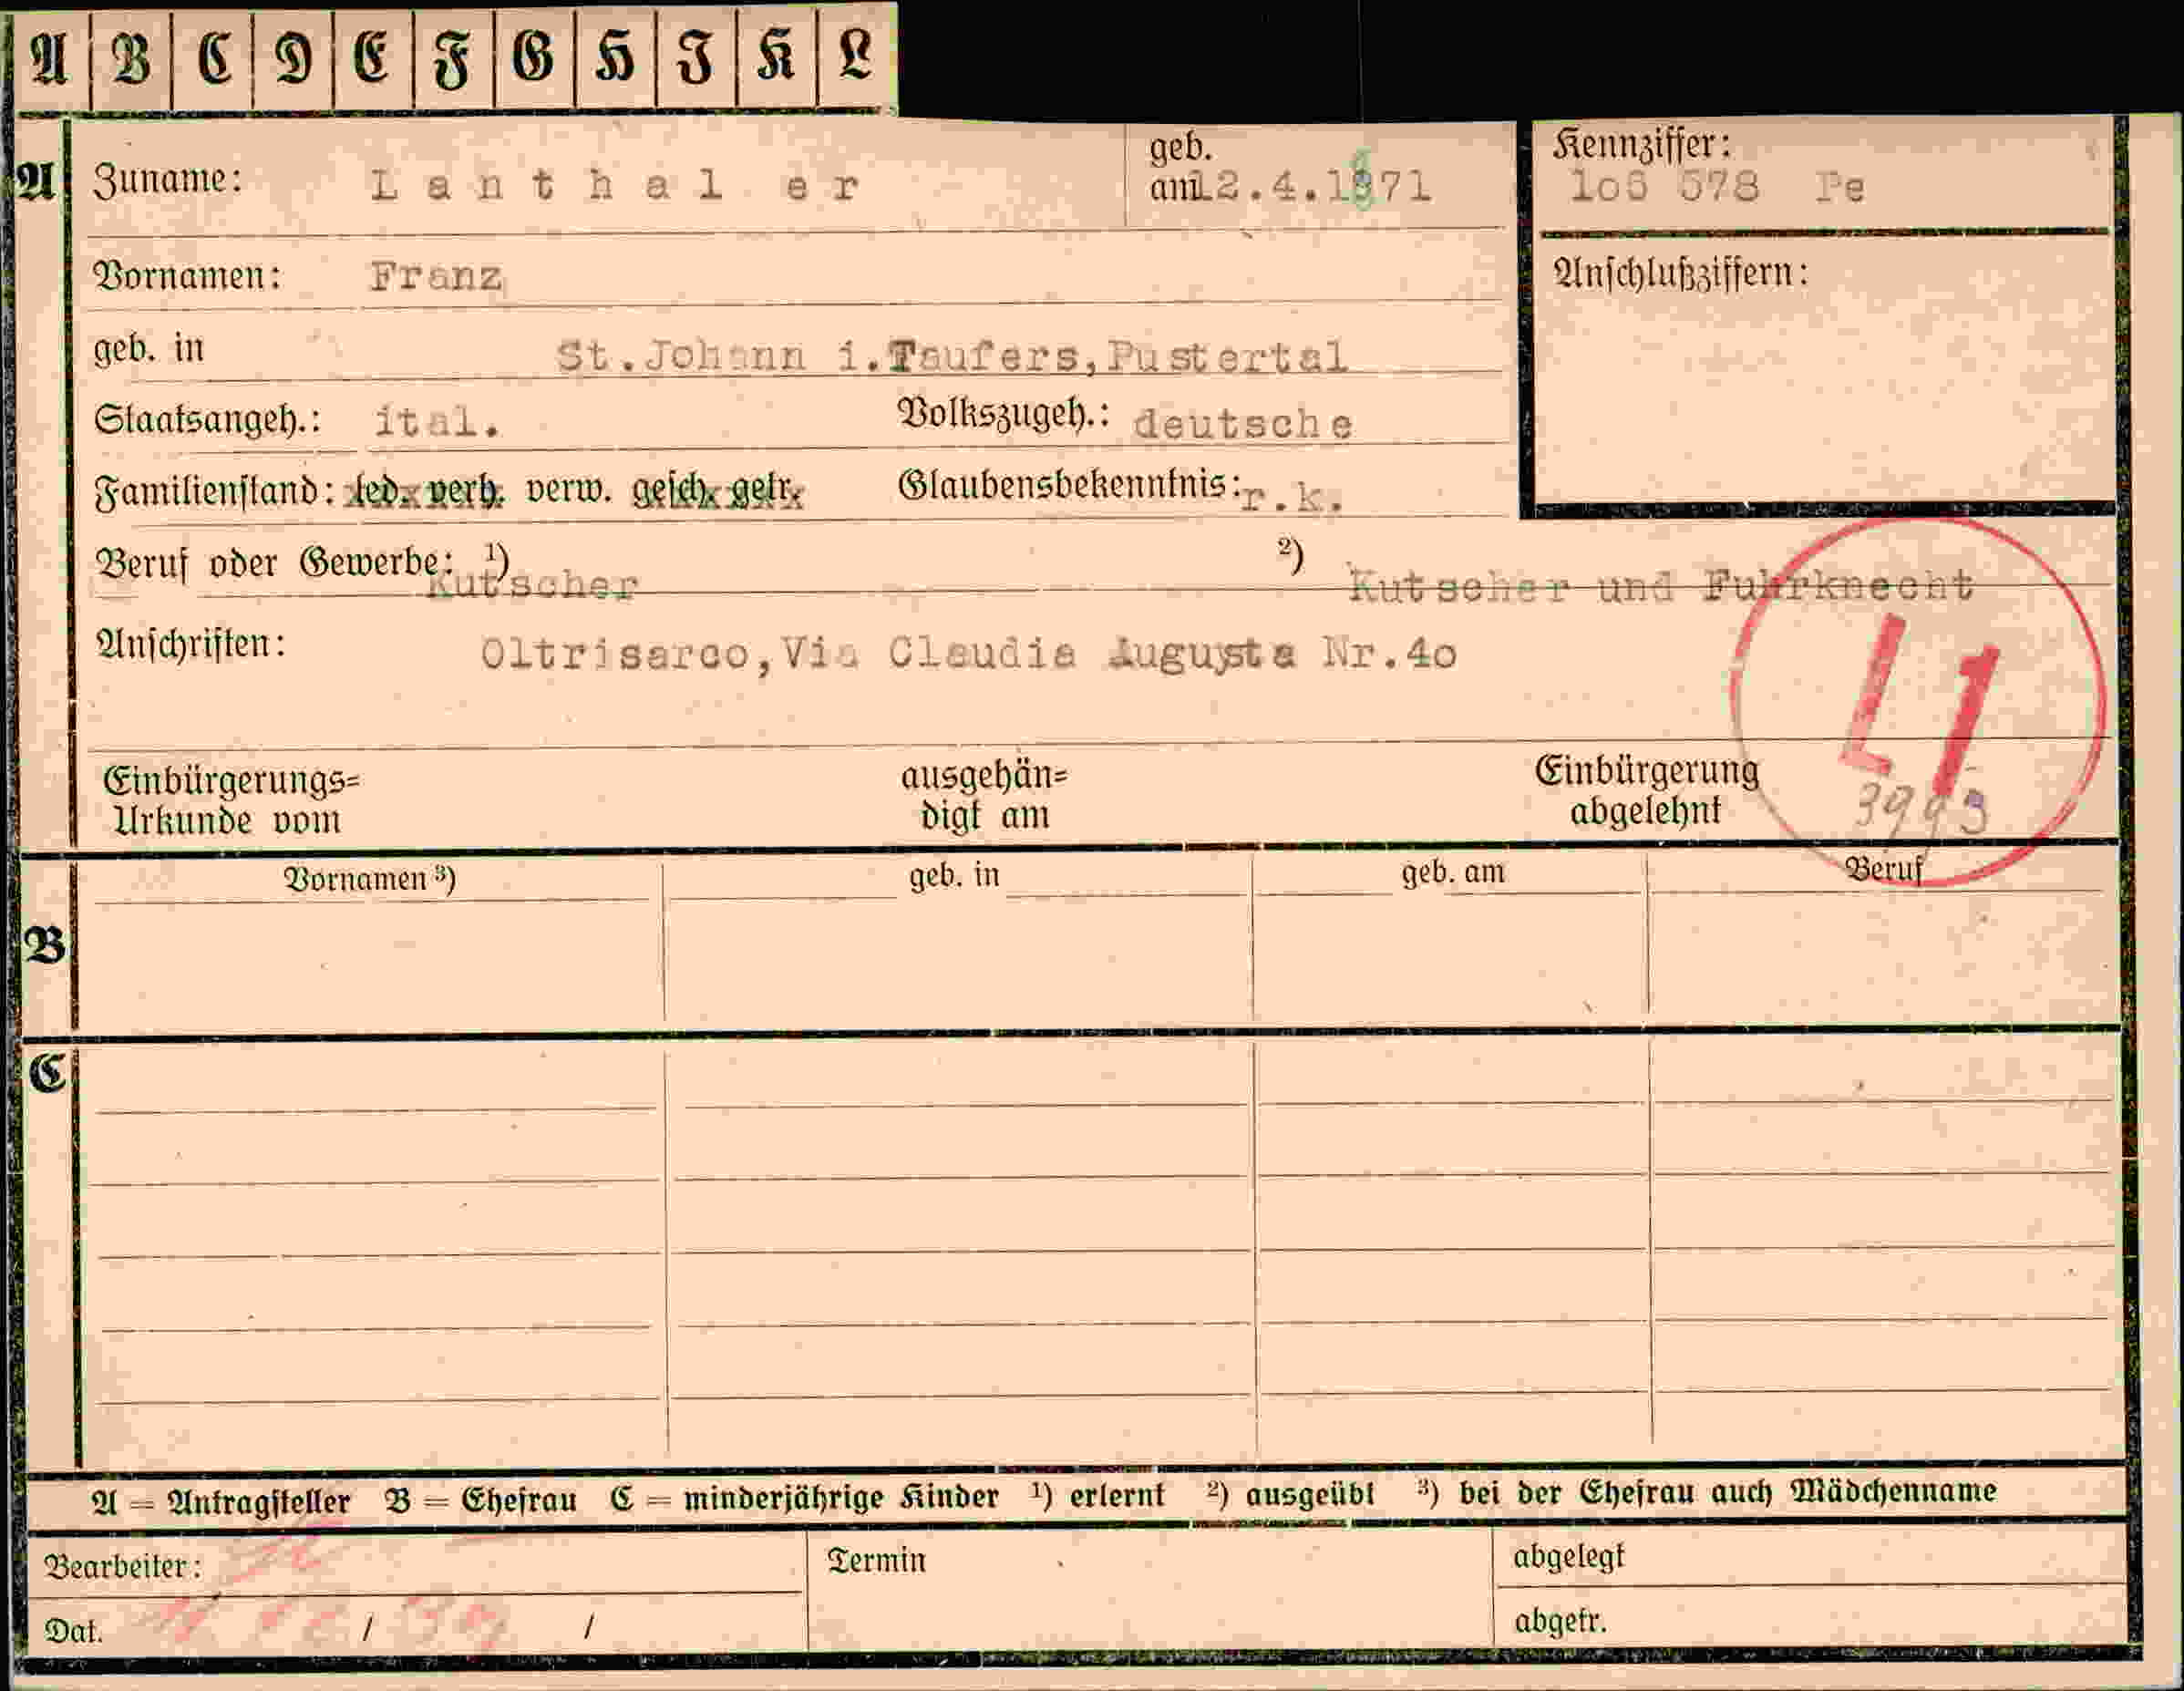 A B C D E F G H I K L
A Zuname: Lanthaler geb. am 12.4.1871 Kennziffer: 1o6 578 Pe
Vornamen: Franz Anschlußziffern:
geb. in St.Johann i.Taufers,Pustertal
Staatsangeh.: ital. Volkszugeh.: deutsche
Familienstand: led. verh. verw. gesch. getr. Glaubensbekenntnis: r.k.
Beruf oder Gewerbe: 1) Kutscher 2) Kutscher und Fuhrknecht
Anschriften: Oltrisarco,Via Claudia Augusta Nr.4o
L1
Einbürgerungs= ausgehän= Einbürgerung
Urkunde vom digt am abgelehnt 3993
Vornamen 3) geb. in geb. am Beruf
B
C
A = Antragsteller B = Ehefrau C = minderjährige Kinder 1) erlernt 2) ausgeübt 3) bei der Ehefrau auch Mädchenname
Bearbeiter: Termin abgelegt
Dat. / / abgetr.